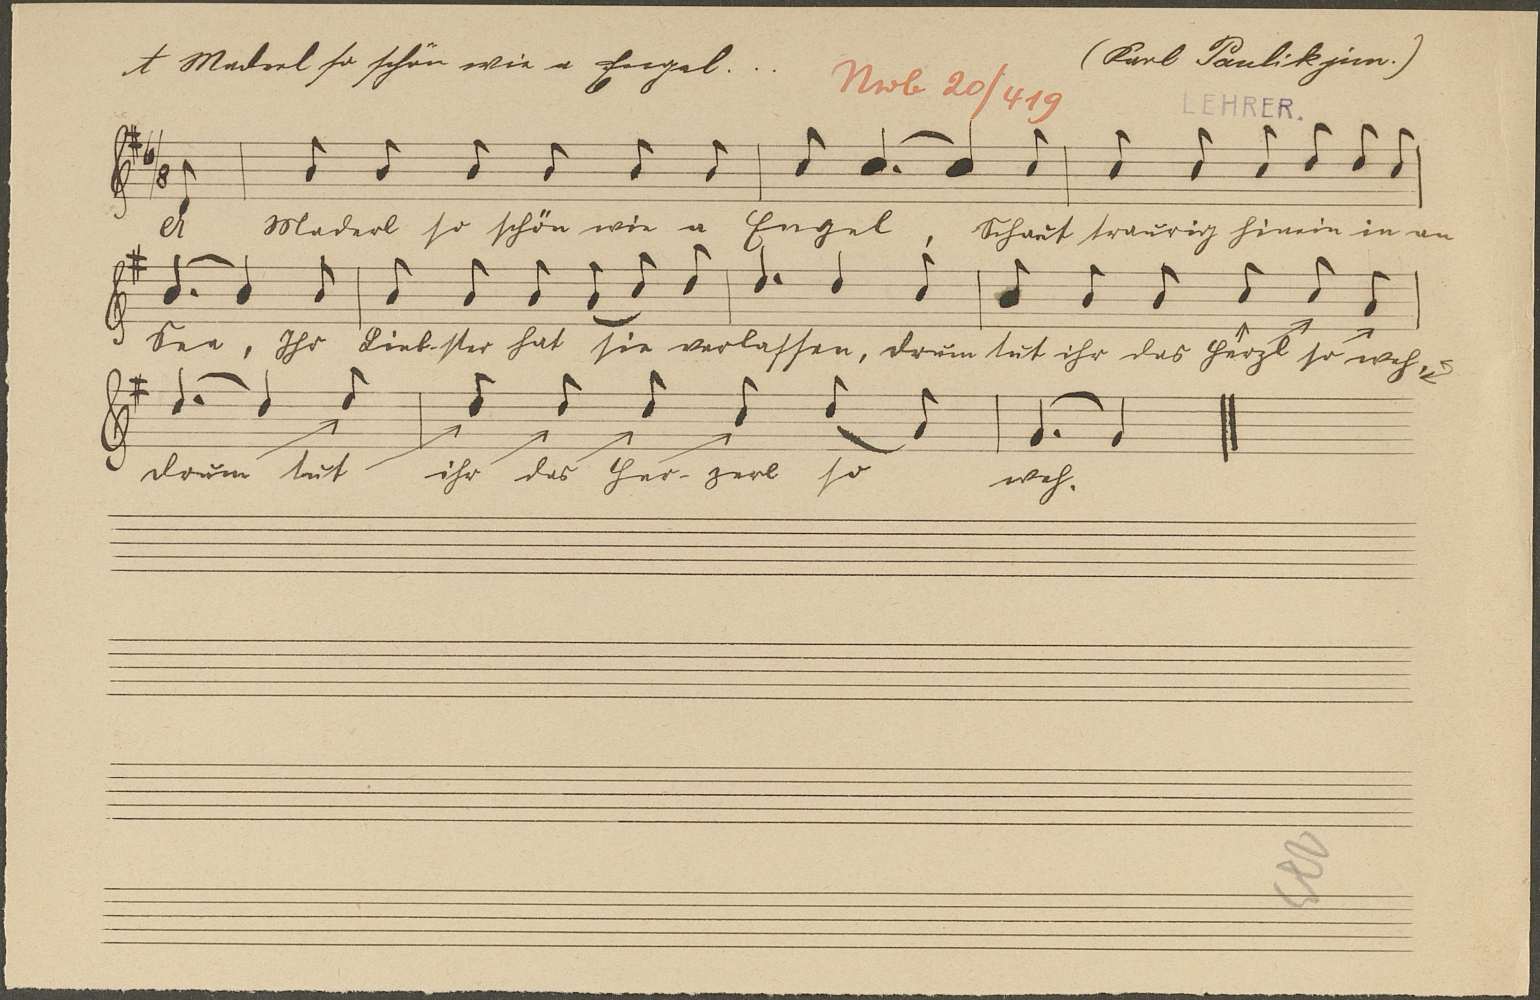 A Maderl so schön wie a Engel. . .
(Karl Paulik jun.)
Nwb 20/419
LEHRER.
A Maderl so schön wie a Engel, Schaut traurig hinein in an
See, Ihr Lieb-ster hat sie verlassen, drum tut ihr das Herzl so weh,
drum tut ihr das Her-zerl so weh.